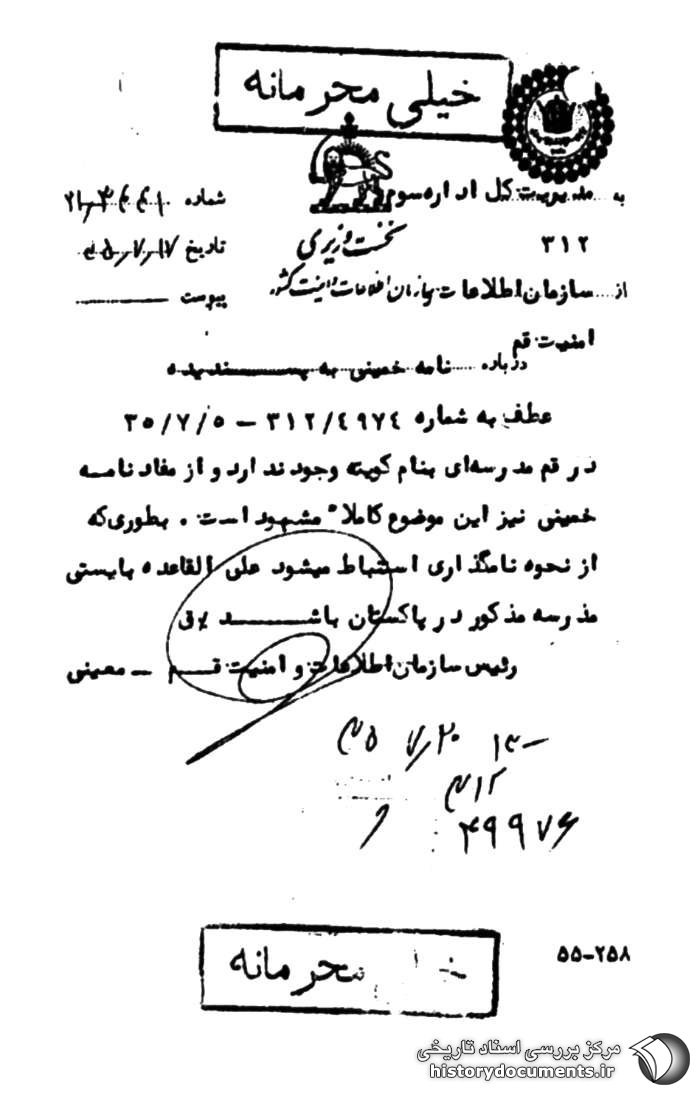 خیلی محرمانه
به مدیریت کل اداره سوم
شماره
۳۱۲
نخست وزیری
تاریخ ۴۵/۷/۱۷
از سازمان اطلاعات سازمان اطلاعات و امنیت کشور
پیوست
امنیت قم
درباره نامه خمینی به پسندیده
عطف به شماره ۳۱۲/۴۹۷۴ – ۳۵/۷/۵
در قم مدرسه‌ای بنام کویته وجود ندارد و از مفاد نامه
خمینی نیز این موضوع کاملا" مشهود است . بطوری‌که
از نحوه نامگذاری استنباط میشود علی القاعده بایستی
مدرسه مذکور در پاکستان باشد
رئیس سازمان اطلاعات و امنیت قم – معینی
۴۵/۷/۲۰
۳۱۲
۴۹۹۷۶
۵۵-۲۵۸
محرمانه
مرکز بررسی اسناد تاریخی
historydocuments.ir